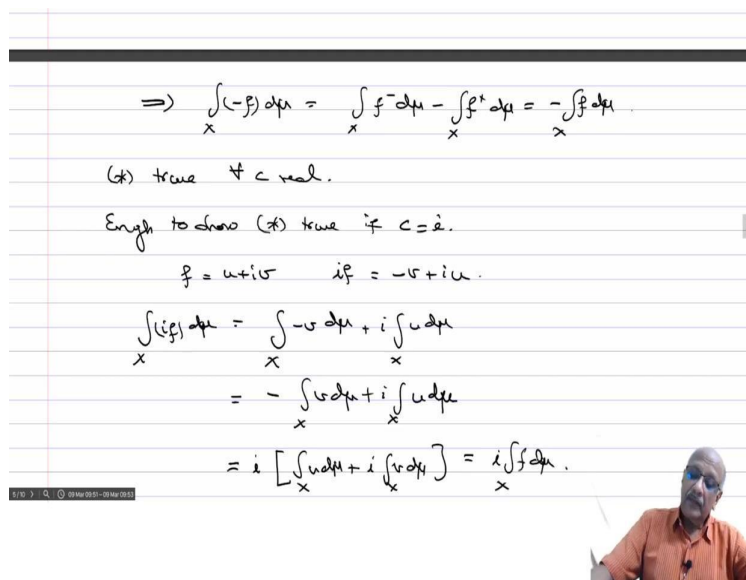 ⇒ ∫_X (-f) dμ = ∫_X f⁻ dμ - ∫_X f⁺ dμ = -∫_X f dμ.
(*) true ∀ c real.
Engh to show (*) true if c = i.
f = u+iv if = -v+iu.
∫_X (if) dμ = ∫_X -v dμ + i ∫_X u dμ
= - ∫_X v dμ + i ∫_X u dμ
= i [∫_X u dμ + i ∫_X v dμ] = i ∫_X f dμ.
5/10 09 Mar 09:51 - 09 Mar 09:53